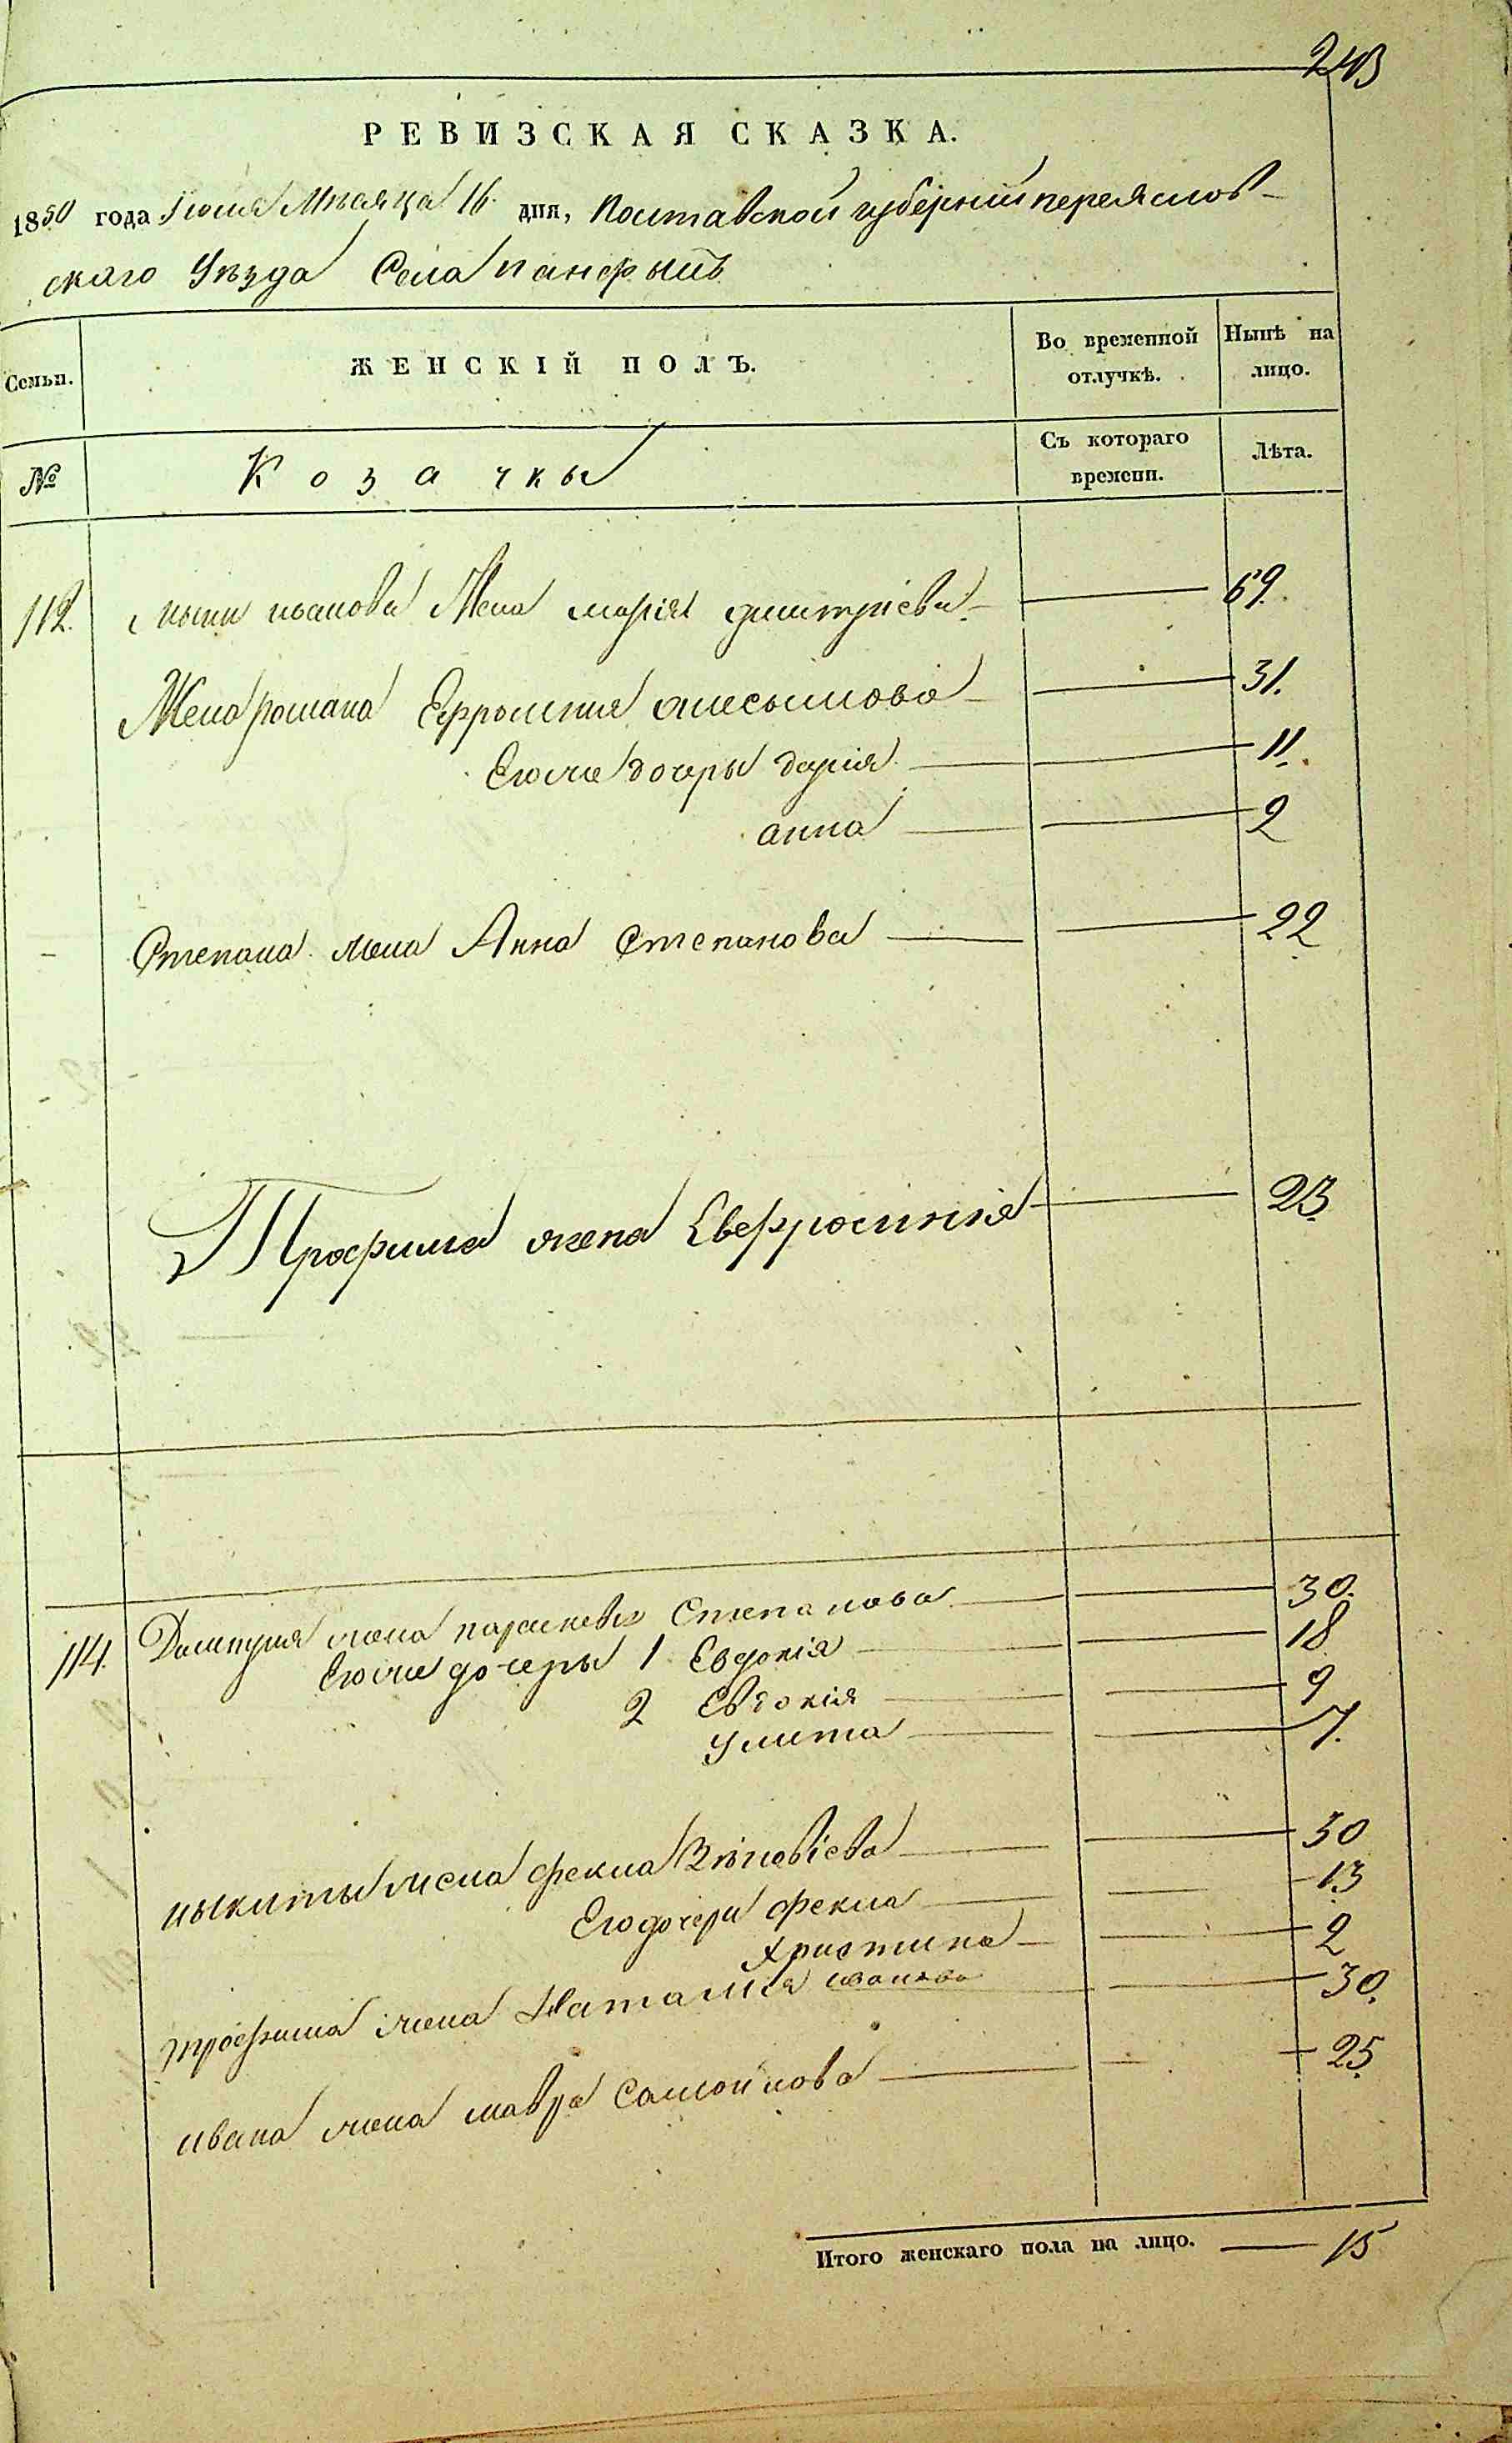 243
РЕВИЗСКАЯ СКАЗКА.
1850 года Июля Мѣсяца 16 дня, Полтавской губерній переяслов-
скаго Уѣзда Села панфыль
Семьи. ЖЕНСКІЙ ПОЛЪ. Во временной отлучкѣ. Нынѣ на лицо.
№ Козачкы Съ котораго времени. Лѣта.
112. жена марія дмитріева 69.
Жена романа Ефросиния 31.
Егоже дочеры дария 11.
анна 2
Степана жена Анна Степанова 22
Трофима жена Евфросинія 23
114. Дмитрия жена параскевія Степанова 30.
Егоже дочеры 1 Евдокія 18
2 Евдокія 9
Улита 7.
ныкиты жена фекла Зѣновіева 30
Его дочери фекла 13
христина 2
трофима жена Наталия иванова 30.
ивана жена мавра Самойлова 25
Итого женскаго пола на лицо. 15